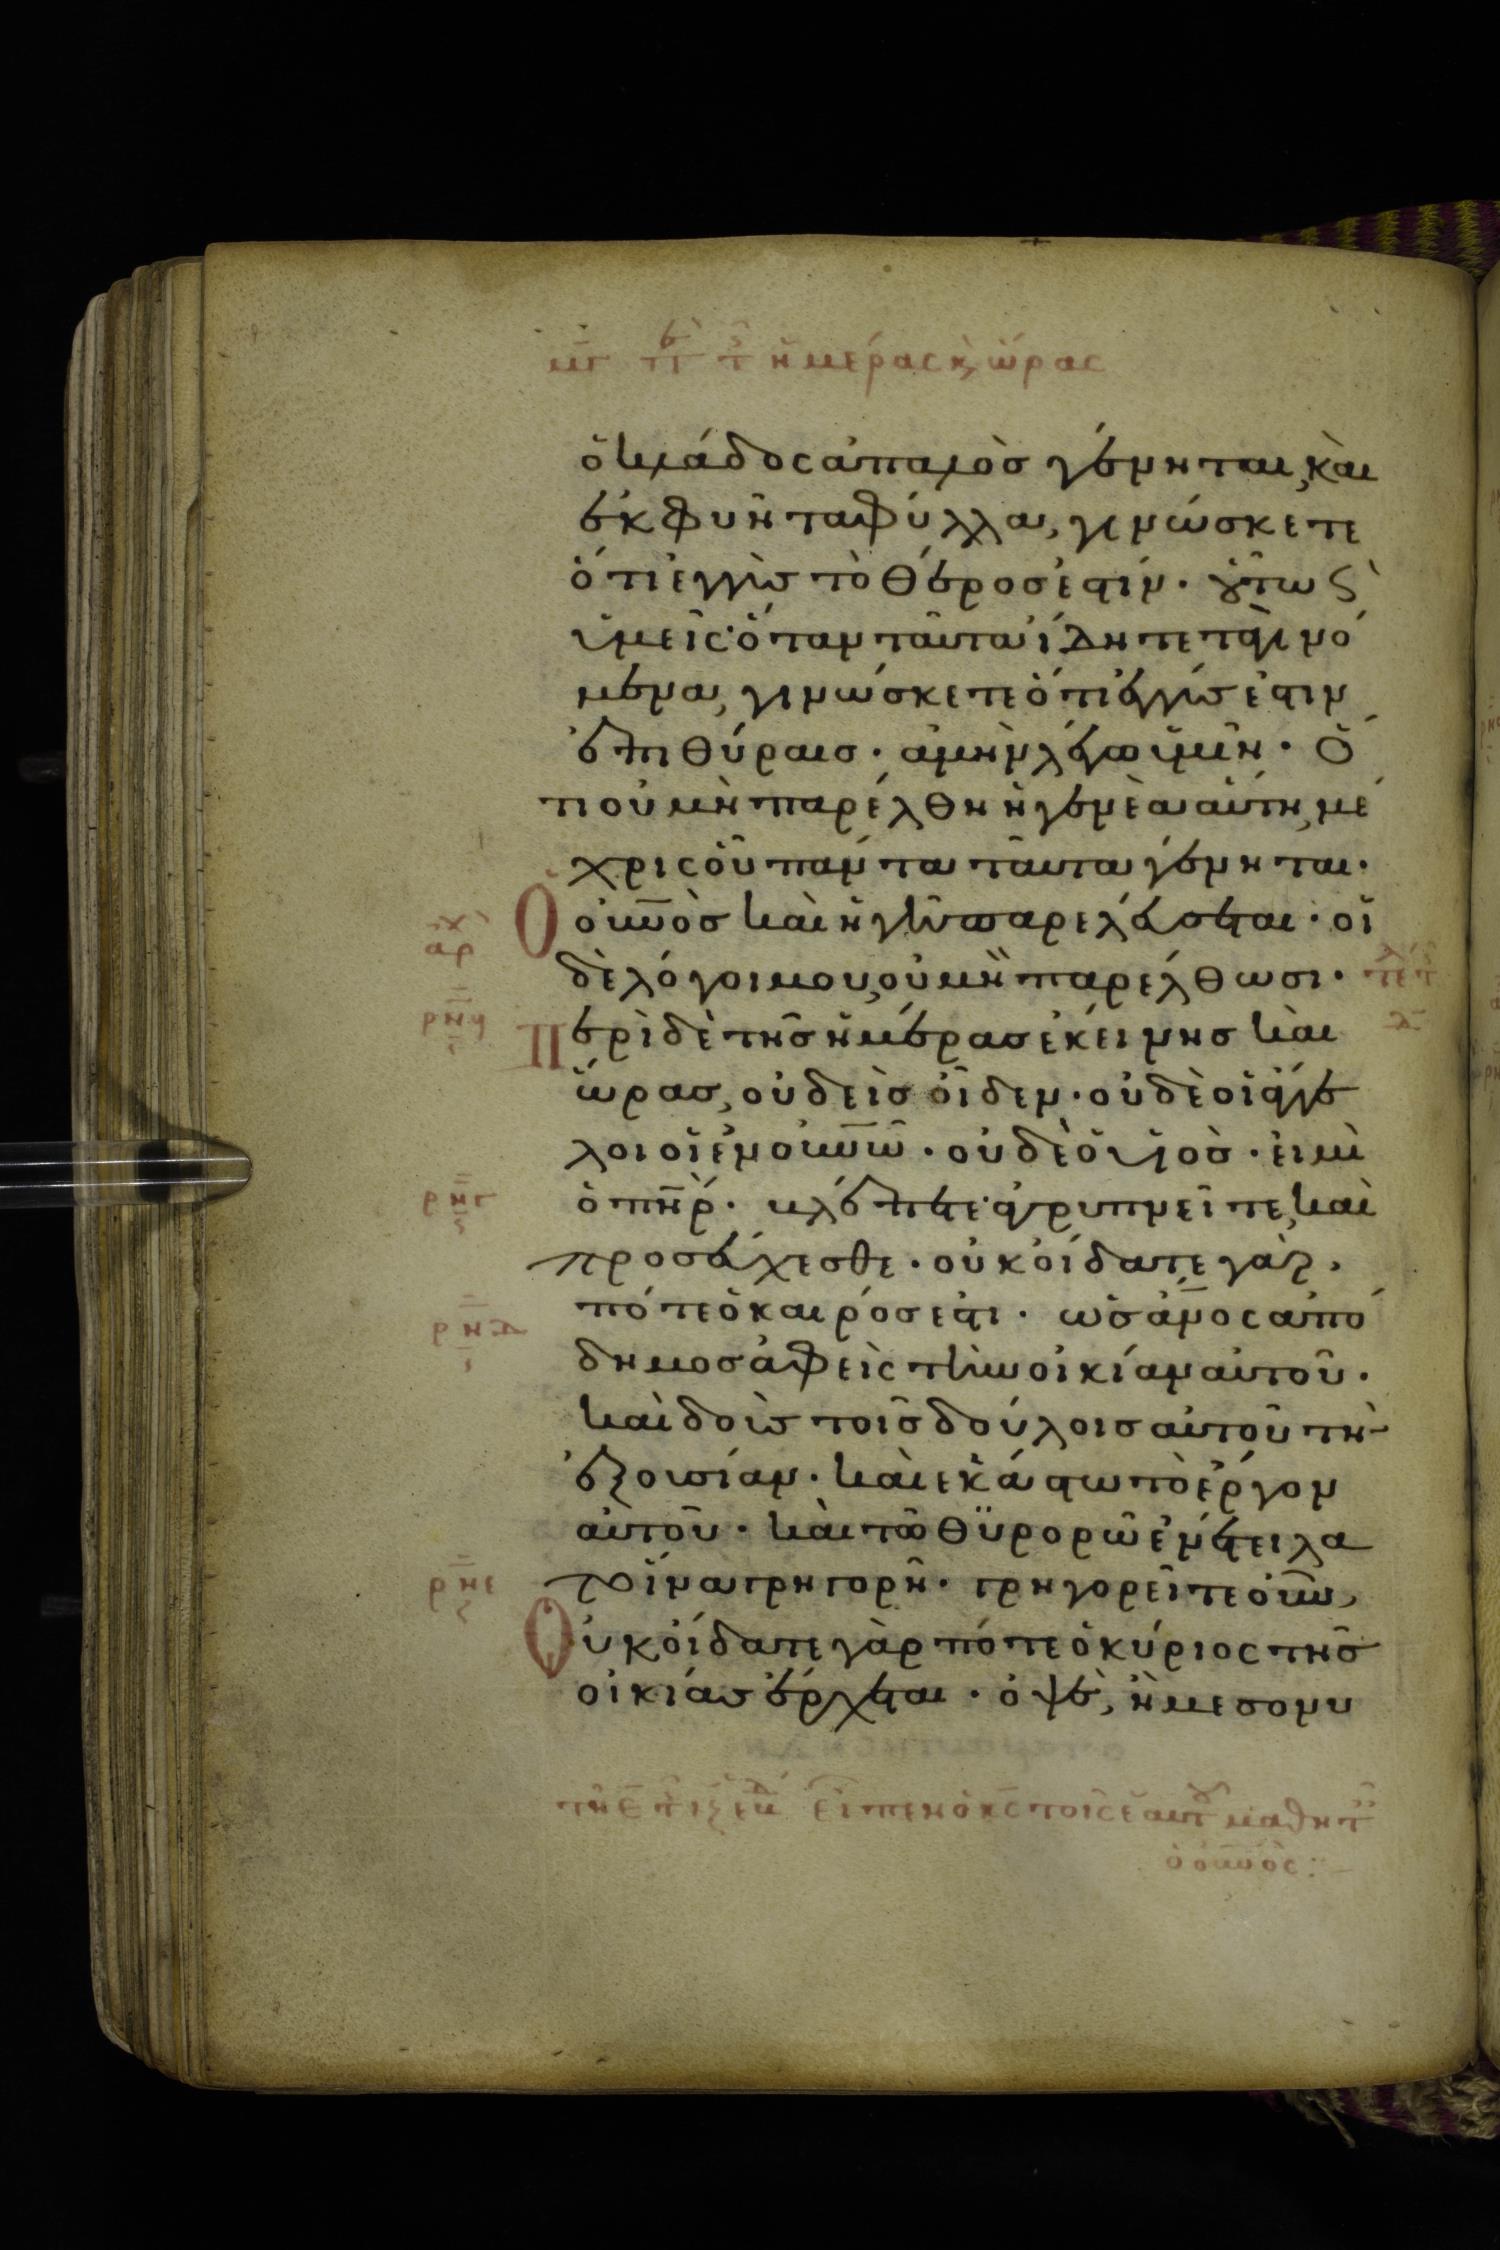 μγ πε τ ἡμέρας κ ὥρας
ὁ κλάδος ἁπαλὸσ γένηται, καὶ
ἐκφυῆ τα φύλλα, γινώσκετε
ὅτι ἐγγὺσ τὸ θέροσ ἐστίν· οὕτως
ὑμεῖς· ὅταν ταῦτα ἴδητε γινό
μενα, γινώσκετε ὅτι ἐγγύσ ἐστιν
ἐπι θύραισ· ἀμὴν λέγω ὑμῖν· ὅ
τι οὐ μὴ παρέλθη ἡ γενὲα αὕτη, μέ
χρις οὗ πάντα ταῦτα γένηται·
αρχ
Ὁ οὐνὸσ καὶ ἡ γῆ παρελεύσεται· οἱ
δὲ λόγοι μου, οὐ μὴ παρέλθωσι·
τελ
Περὶ δὲ τῆσ ἡμέρασ ἐκείνησ καὶ
ὥρασ, οὐδεὶσ οἶδεν· οὐδὲ οἱ ἄγγε
λοι οἱ ἐν οὐνῶ· οὐδὲ ὁ υἱὸσ· εἰ μὴ
ρνγ
ὁ πῆρ· βλέπετε· ἀγρυπνεῖτε, καὶ
προσεύχεσθε· οὐκ οἴδατε γὰρ,
ρνδ
πότε ὁ καιρόσ ἐστι· ὡσ ἄνος ἀπό
δημοσ ἀφεὶς τὴν οἰκίαν αὐτοῦ·
καὶ δοὺσ τοῖσ δούλοισ αὐτοῦ τὴν
ἐξουσίαν· καὶ ἑκάστω τὸ ἔργον
αὐτοῦ· καὶ τῶ θϋρορῶ ἐνετειλα
ρνε
το ἵνα γρηγορῆ· γρηγορεῖτε οὖν,
Οὐκ οἴδατε γὰρ πότε ὁ κύριος τῆσ
οἰκίασ ἔρχεται· ὀψὲ, ἢ μεσονυ
εἶπεν ὁ κς τοῖς ἑαυτ μαθητ
ὁ οὐνὸς